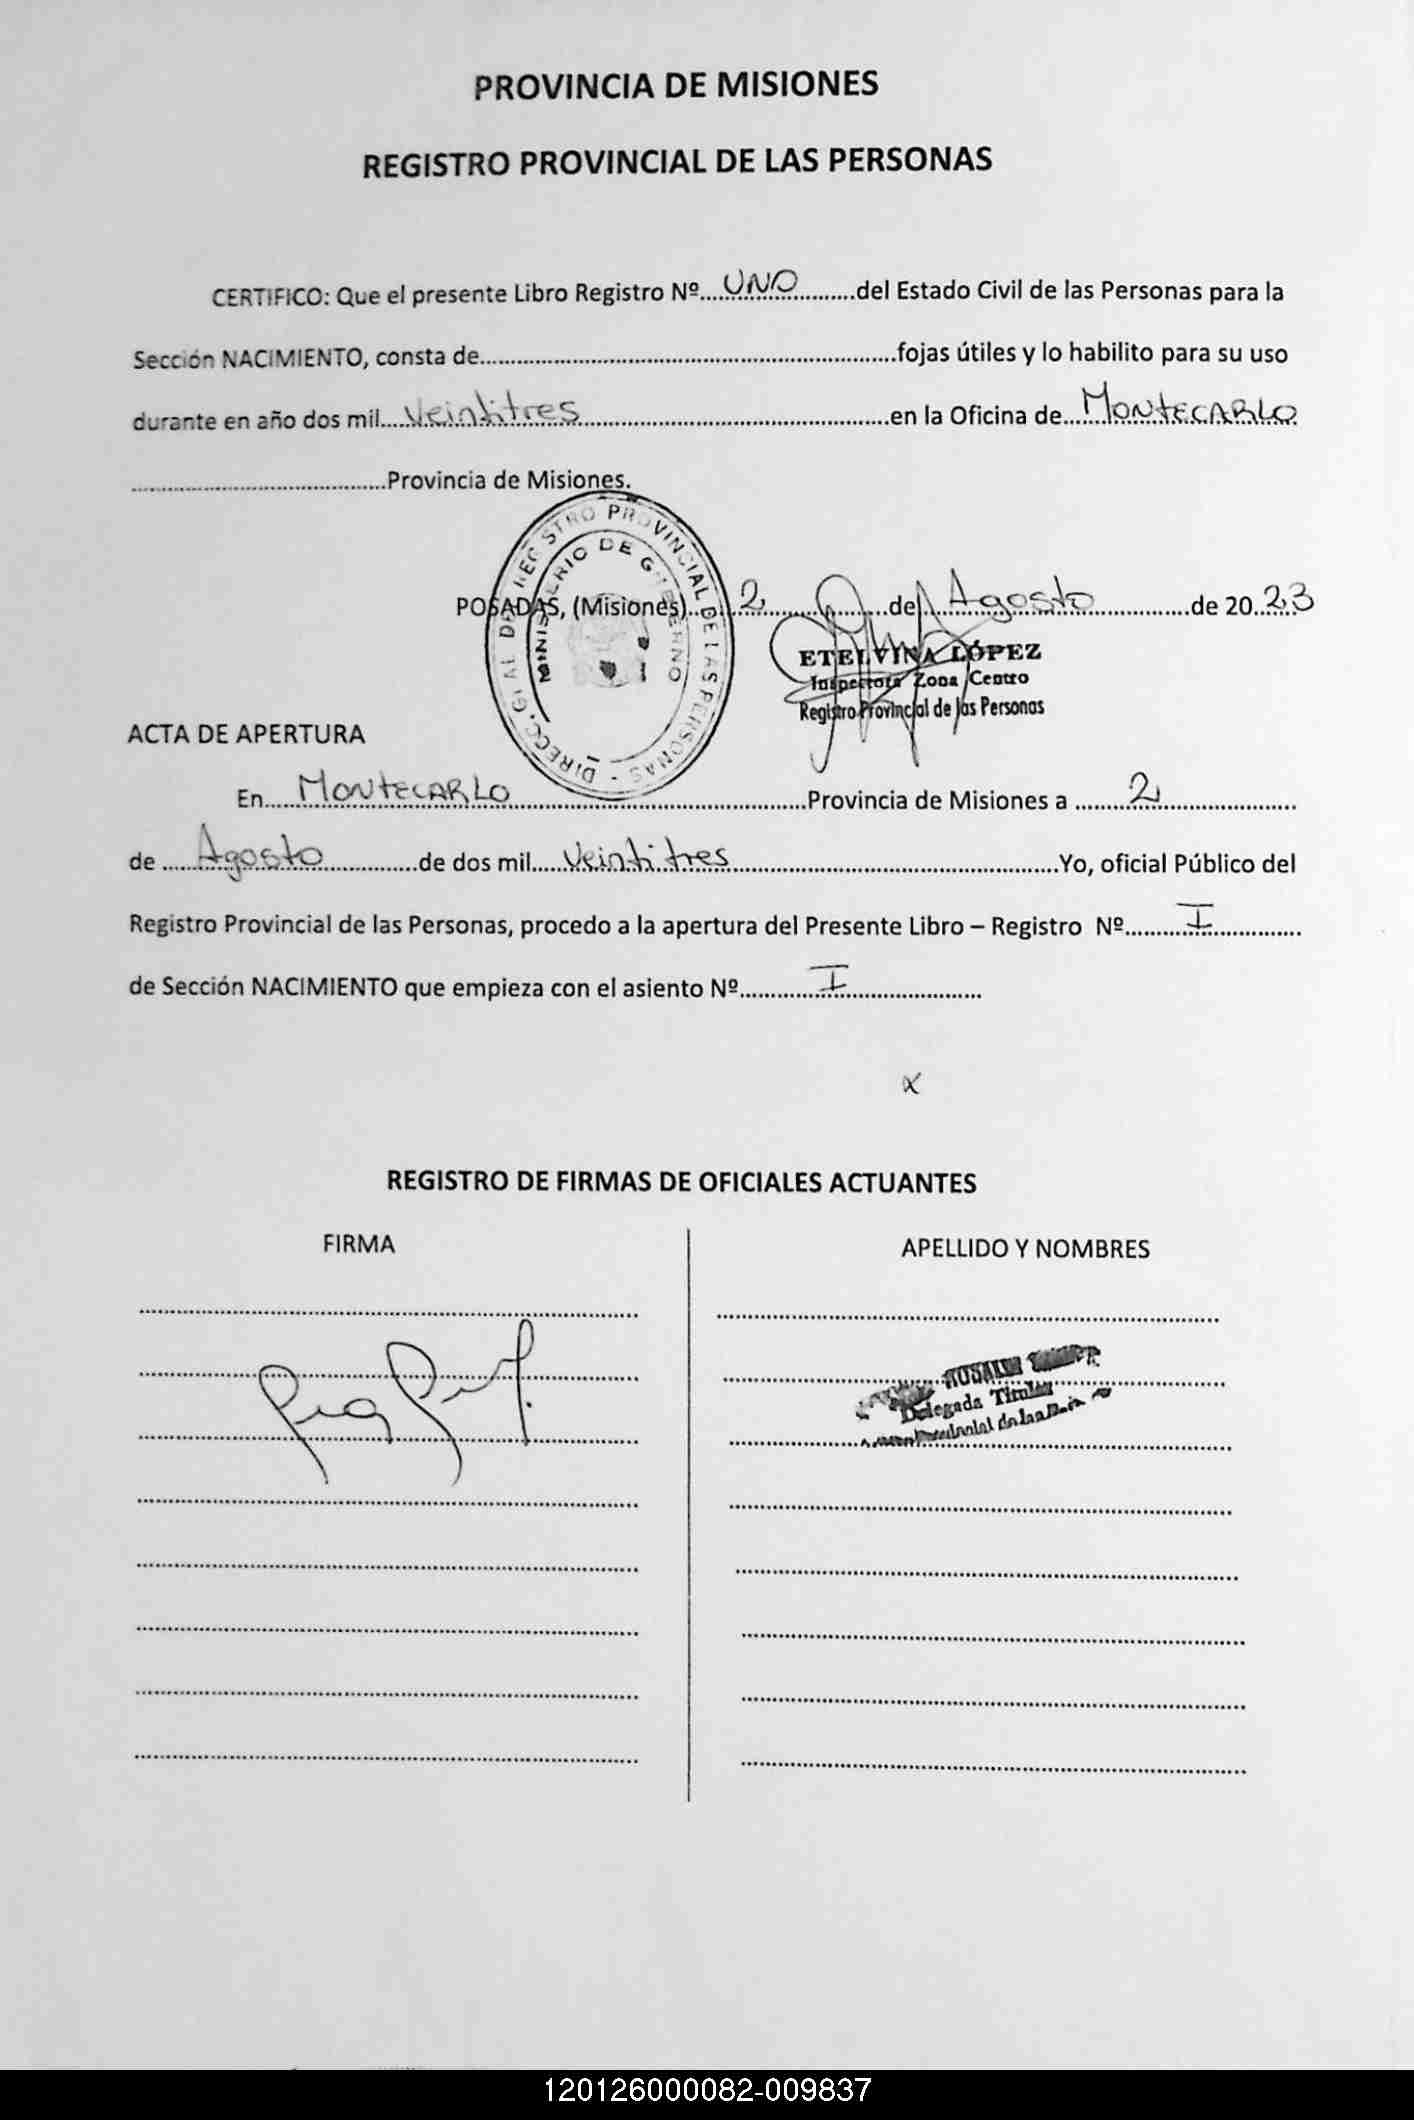 PROVINCIA DE MISIONES
REGISTRO PROVINCIAL DE LAS PERSONAS
CERTIFICO: Que el presente Libro Registro Nº....UNO....del Estado Civil de las Personas para la
Sección NACIMIENTO, consta de....fojas útiles y lo habilito para su uso
durante en año dos mil....Veintitres....en la Oficina de....MONTECARLO
....Provincia de Misiones.
DIRECC. GRAL DEL REGISTRO PROVINCIAL DE LAS PERSONAS -
MINISTERIO DE GOBIERNO
POSADAS, (Misiones)....2....de....Agosto....de 20..23
ETELVINA LÓPEZ
Inspectora Zona Centro
Registro Provincial de las Personas
ACTA DE APERTURA
En....MONTECARLO....Provincia de Misiones a ....2....
de ....Agosto....de dos mil....Veintitres....Yo, oficial Público del
Registro Provincial de las Personas, procedo a la apertura del Presente Libro – Registro Nº....I....
de Sección NACIMIENTO que empieza con el asiento Nº....I....
x
REGISTRO DE FIRMAS DE OFICIALES ACTUANTES
FIRMA
APELLIDO Y NOMBRES
Delegada Titular
120126000082-009837